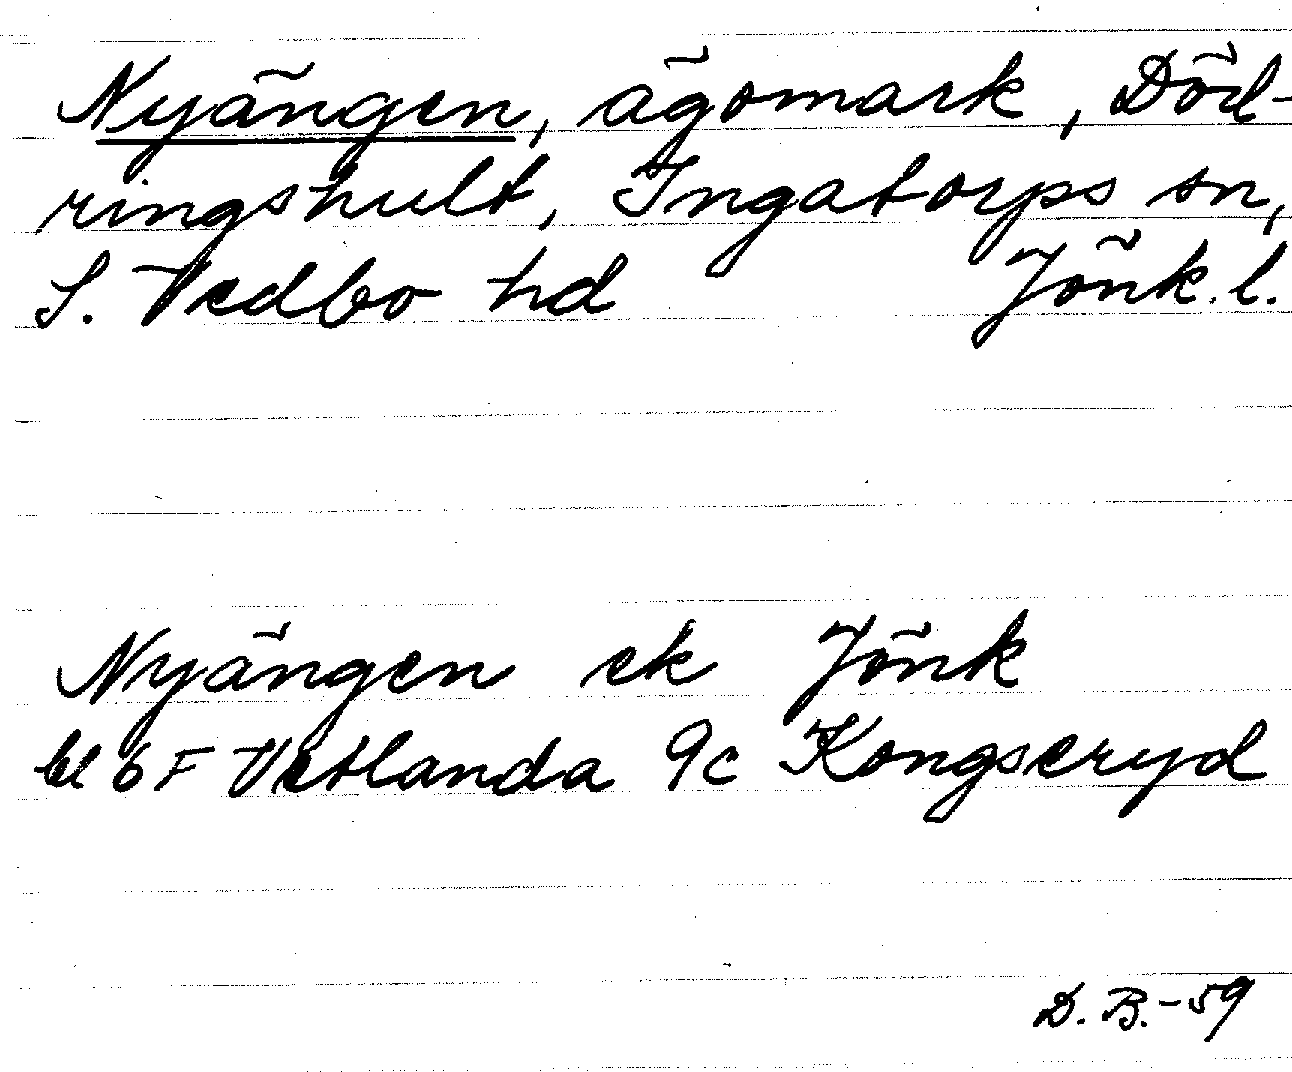 Nyängen, ägomark, Död-
ringshult, Ingatorps sn,
S. Vedbo hd Jönk. l.
Nyängen ek Jönk
bl 6 F Vetlanda 9c Kongseryd
D. B. - 59